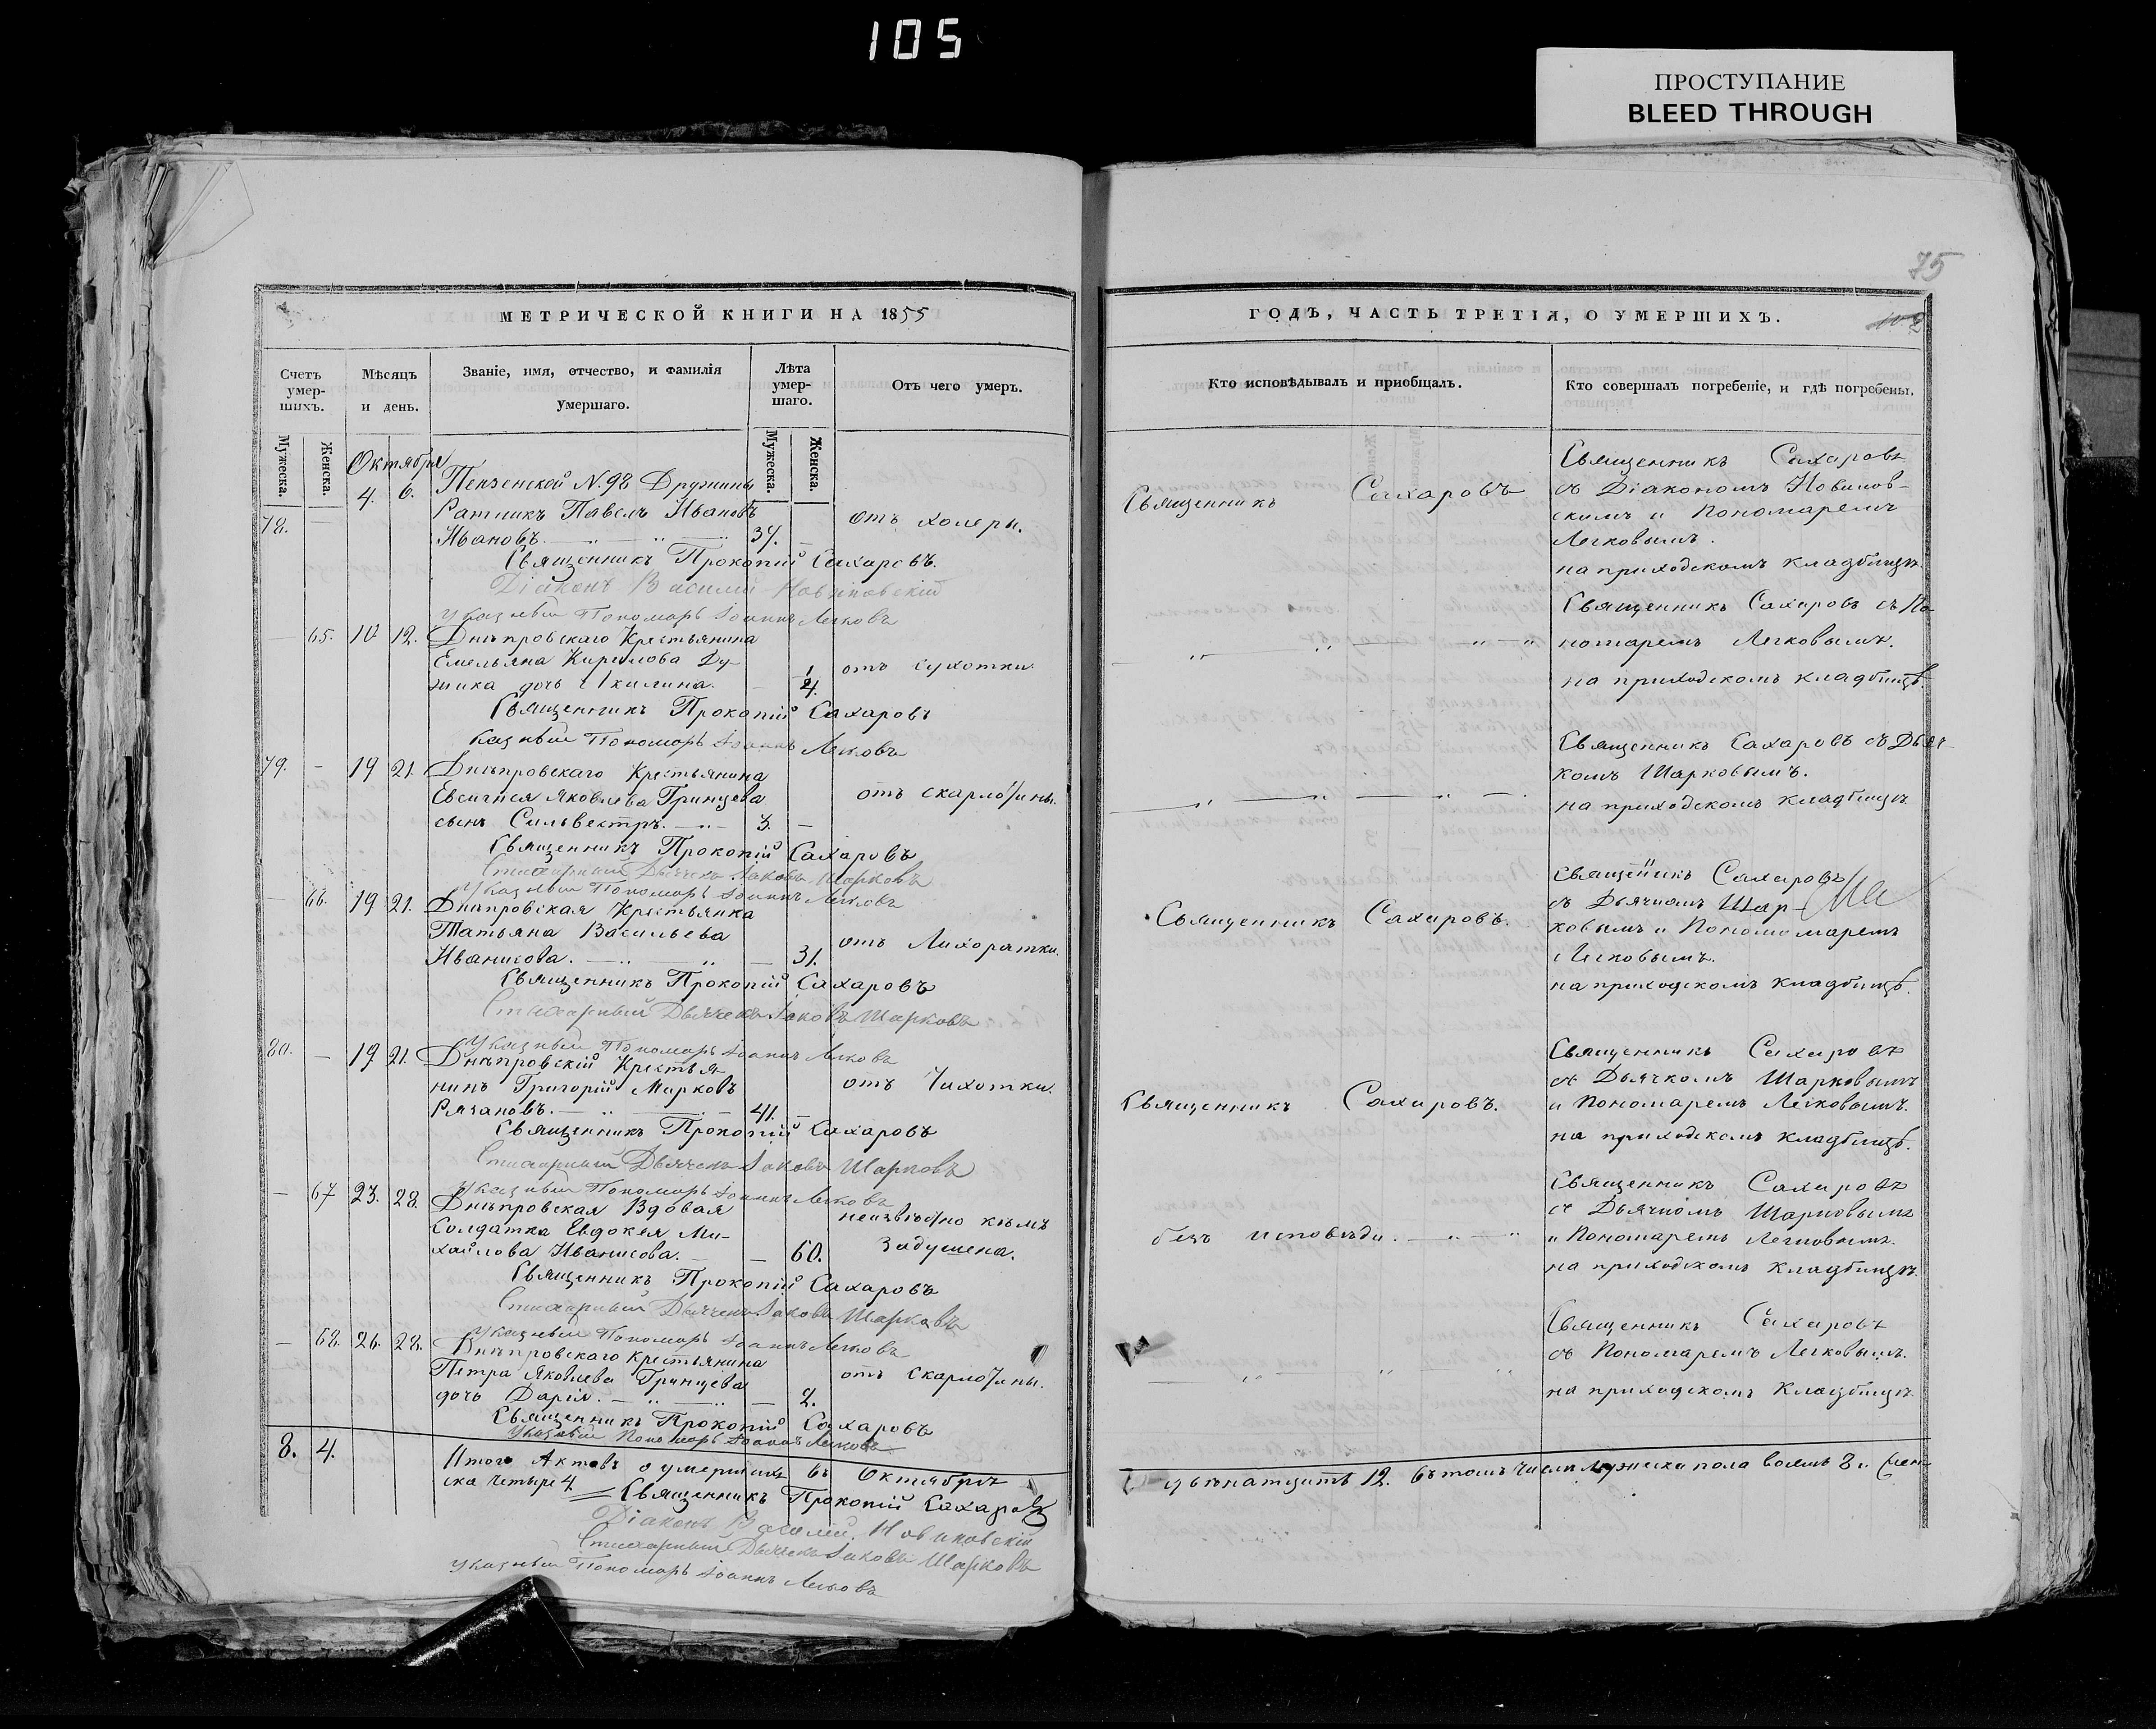 105
ПРОСТУПАНИЕ
BLEED THROUGH
75
МЕТРИЧЕСКОЙ КНИГИ НА 1855
Счетъ умер-шихъ.
Мужеска.
Женска.
Мѣсяцъ и день.
Званіе, имя, отчество, и фамилія умершаго.
Лѣта умер-шаго.
Мужеска.
Женска.
Отъ чего умеръ.
Октября
4. 6. Пензенской N. 98 Дружины
78. Ратникъ Павелъ Ивановъ отъ холеры.
Ивановъ. 37. —
Священникъ Прокопій Сахаровъ.
Діаконъ Василій Новиковскій
Указный Пономарь Іоаннъ Легковъ
— 65. 10 12. Днѣпровскаго Крестьянина
Емельяна Кирилова Ду-
дочь Акилина. — отъ сухотки.
Священникъ Прокопій Сахаровъ
Указный Пономарь Іоаннъ Легковъ
79. — 19 21. Днѣпровскаго Крестьянина
Евсигнея Яковлева Гринцева отъ скарлотины.
сынъ Сильвестръ. 3. —
Священникъ Прокопій Сахаровъ
Стихарный Дьячекъ Іаковъ Шарковъ
Указный Пономарь Іоаннъ Легковъ
— 66. 19 21. Днѣпровская Крестьянка
Татьяна Васильева отъ Лихоратки.
Иванисова. — 31.
Священникъ Прокопій Сахаровъ
Стихарный Дьячекъ Іаковъ Шарковъ
Указный Пономарь Іоаннъ Легковъ
80. — 19 21. Днѣпровскій Крестья-
нинъ Григорій Марковъ отъ Чихотки.
Рязановъ. 41. —
Священникъ Прокопій Сахаровъ
Стихарный Дьячекъ Іаковъ Шарковъ
Указный Пономарь Іоаннъ Легковъ
— 67 23. 28. Днѣпровская Вдовая неизвѣстно кѣмъ
Солдатка Евдокея Ми- Задушена.
хайлова Иванисова. — 60.
Священникъ Прокопій Сахаровъ
Стихарный Дьячекъ Іаковъ Шарковъ
Указный Пономарь Іоаннъ Легковъ
— 68. 26. 28. Днѣпровскаго Крестьянина
Петра Яковлева Гринцева отъ Скарлотины.
дочь Дарія. — 2.
Священникъ Прокопій Сахаровъ
Указный Пономарь Іоаннъ Легковъ
8. 4. Итого Актовъ о умершихъ въ Октябрѣ
ска четыре 4.
Священникъ Прокопій Сахаровъ
Діаконъ Василій Новиковскій
Стихарный Дьячекъ Іаковъ Шарковъ
Указный Пономарь Іоаннъ Легковъ
ГОДЪ, ЧАСТЬ ТРЕТІЯ, О УМЕРШИХЪ.
Кто исповѣдывалъ и пріобщалъ.
Кто совершалъ погребеніе, и гдѣ погребены.
Священникъ Сахаровъ
Священникъ Сахаровъ
съ Діакономъ Новиков-
скимъ и Пономаремъ
Легковымъ.
на приходскомъ кладбищѣ.
Священникъ Сахаровъ съ По-
номаремъ Легковымъ.
на приходскомъ кладбищѣ.
Священникъ Сахаровъ съ Дьяч-
комъ Шарковымъ.
на приходскомъ кладбищѣ
Священникъ Сахаровъ.
Священникъ Сахаровъ
съ Дьячкомъ Шар-
ковымъ и Пономомаремъ
Легковымъ.
на приходскомъ кладбищѣ.
Священникъ Сахаровъ.
Священникъ Сахаровъ
съ Дьячкомъ Шарковымъ
и Пономаремъ Легковымъ.
на приходскомъ кладбищѣ.
безъ исповѣди.
Священникъ Сахаровъ
съ Дьячкомъ Шарковымъ
и Пономаремъ Легковымъ.
на приходскомъ кладбищѣ.
Священникъ Сахаровъ
съ Пономаремъ Легковымъ.
на приходскомъ кладбищѣ.
двѣнатцать 12. въ томъ числѣ мужеска пола восмь 8 и жен-